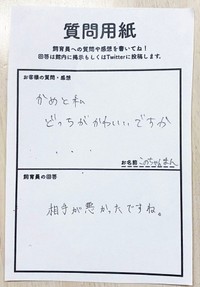 質問用紙
飼育員への質問や感想を書いてね！
回答は館内に掲示もしくはTwitterに投稿します。
お客様の質問・感想
かめと私
どっちがかわいいですか
...
お名前 このちゃんまん
飼育員の回答
相手が悪かったですね。